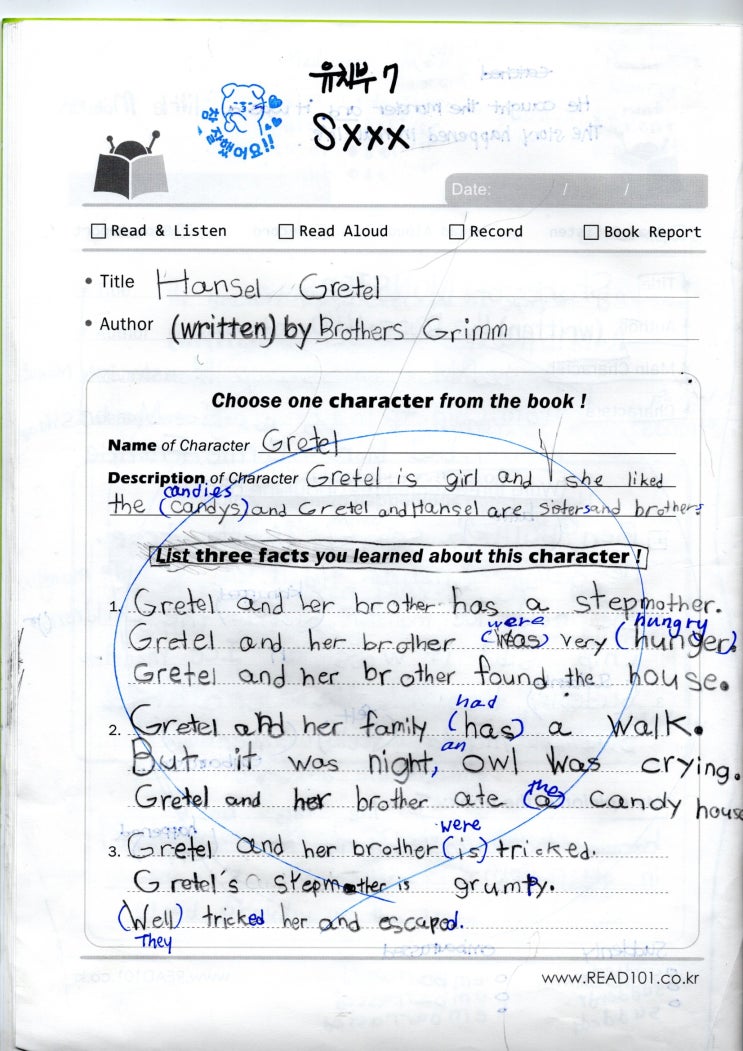 유치부 7
Sxxx
참 잘했어요!!
Date: / /
Read & Listen Read Aloud Record Book Report
• Title Hansel Gretel
• Author (written) by Brothers Grimm
Choose one character from the book !
Name of Character Gretel
Description of Character Gretel is girl and she liked
candies
the (candys) and Gretel and Hansel are sisters and brothers
List three facts you learned about this character !
1. Gretel and her brother has a stepmother.
were hungry
Gretel and her brother (was) very (hunger.)
Gretel and her brother found the house.
had
2. Gretel and her family (has) a walk.
an
But it was night, owl was crying.
the
Gretel and her brother ate (a) candy house
were
3. Gretel and her brother (is) tricked.
Gretel's stepmother is grumpy.
(Well) tricked her and escaped.
They
www.READ101.co.kr